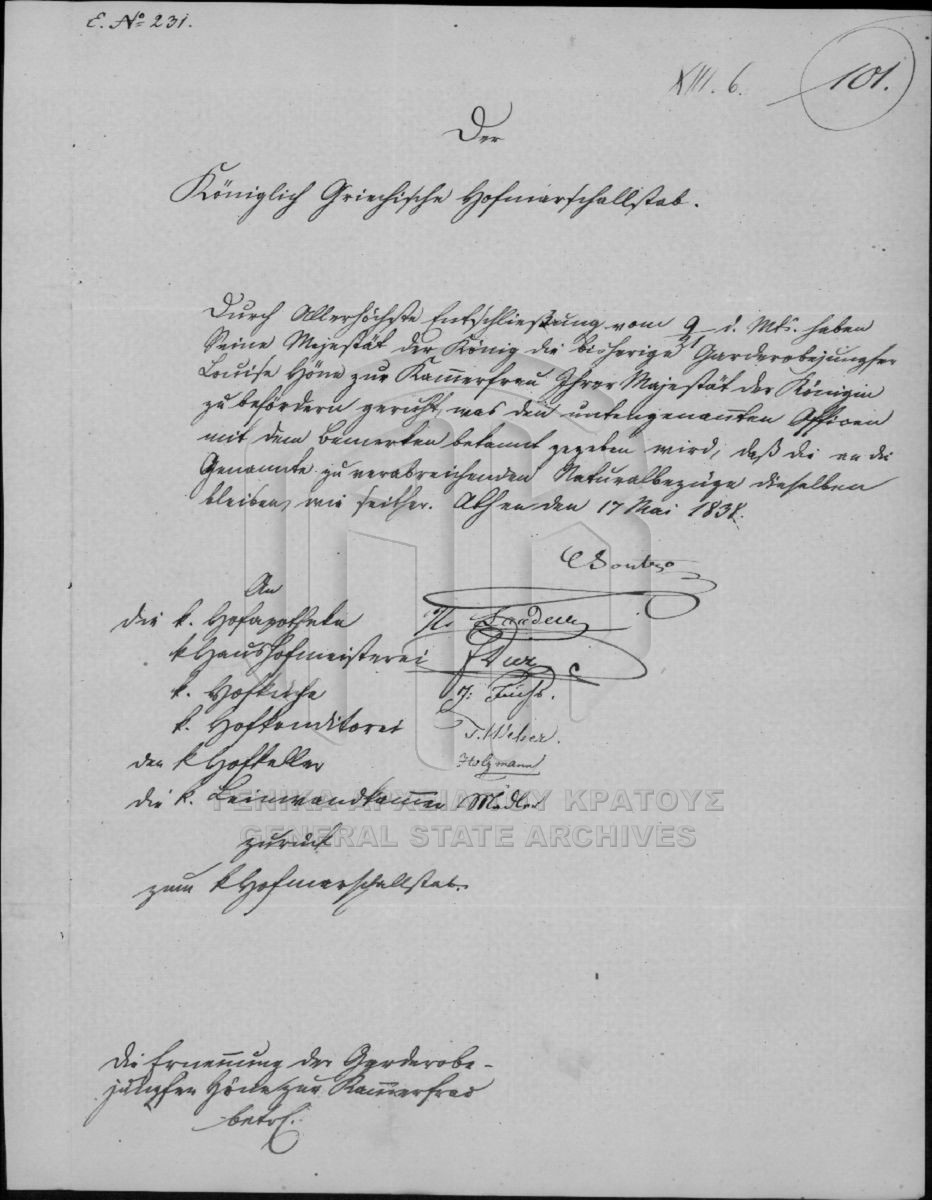 E. No 231.
XIII. 6.
101.
Der
Königlich Griechische Hofmarschallstab.
Durch Allerhöchste Entschließung vom 9 d. Mts. haben
Seine Majestät der König die bisherige Garderobejungfer
Louise Höne zur Kam̅erfrau Ihrer Majestät der Königin
zu befördern geruht, was den untengenan̅ten Officen
mit dem Bemerken bekannt gegeben wird, daß die an die
Genannte zu verabreichenden Naturalbezüge dieselben
bleiben, wie seither. Athen den 17 Mai 1838.
An
die k. Hofapotheke
k Haushofmeisterei
k. Hofküche
J: Fuchs.
k. Hofkonditorei
J. Weber.
den k Hofkeller
Holzmann
die k. Leinwandkam̅er
ΓΕΝΙΚΑ ΑΡΧΕΙΑ ΤΟΥ ΚΡΑΤΟΥΣ
GENERAL STATE ARCHIVES
zurück
zum k Hofmarschallstab.
Die Ernen̅ung der Garderobe-
jungfer Höne zur Kam̅erfrau
betrf.